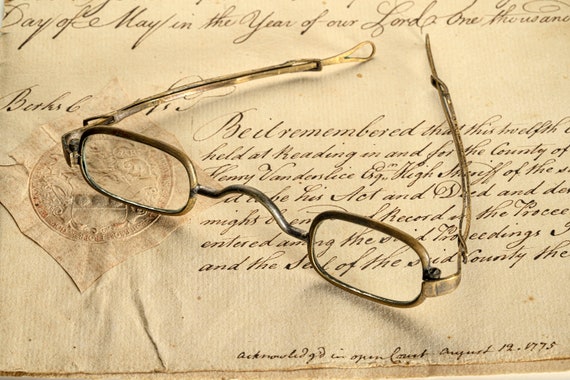 Day of May in the Year of our Lord One thousan
Berks C ss
Be it remembered that this twelfth
held at Reading in and for the County of
Henry Vanderslice Esqr. High Sheriff of the
to be his Act and and
might Record of the Procee
entered among the said Proceedings
and the Seal of the said County the
acknowledg'd in open Court august 12. 1775